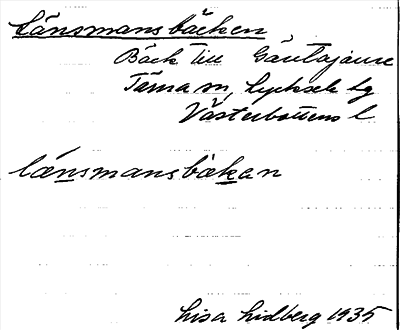 Länsmansbäcken
Bäck till Gäutajaure
Tärna sn, Lycksele lg
Västerbottens l
länsmansbäkan
Lisa Lidberg 1935